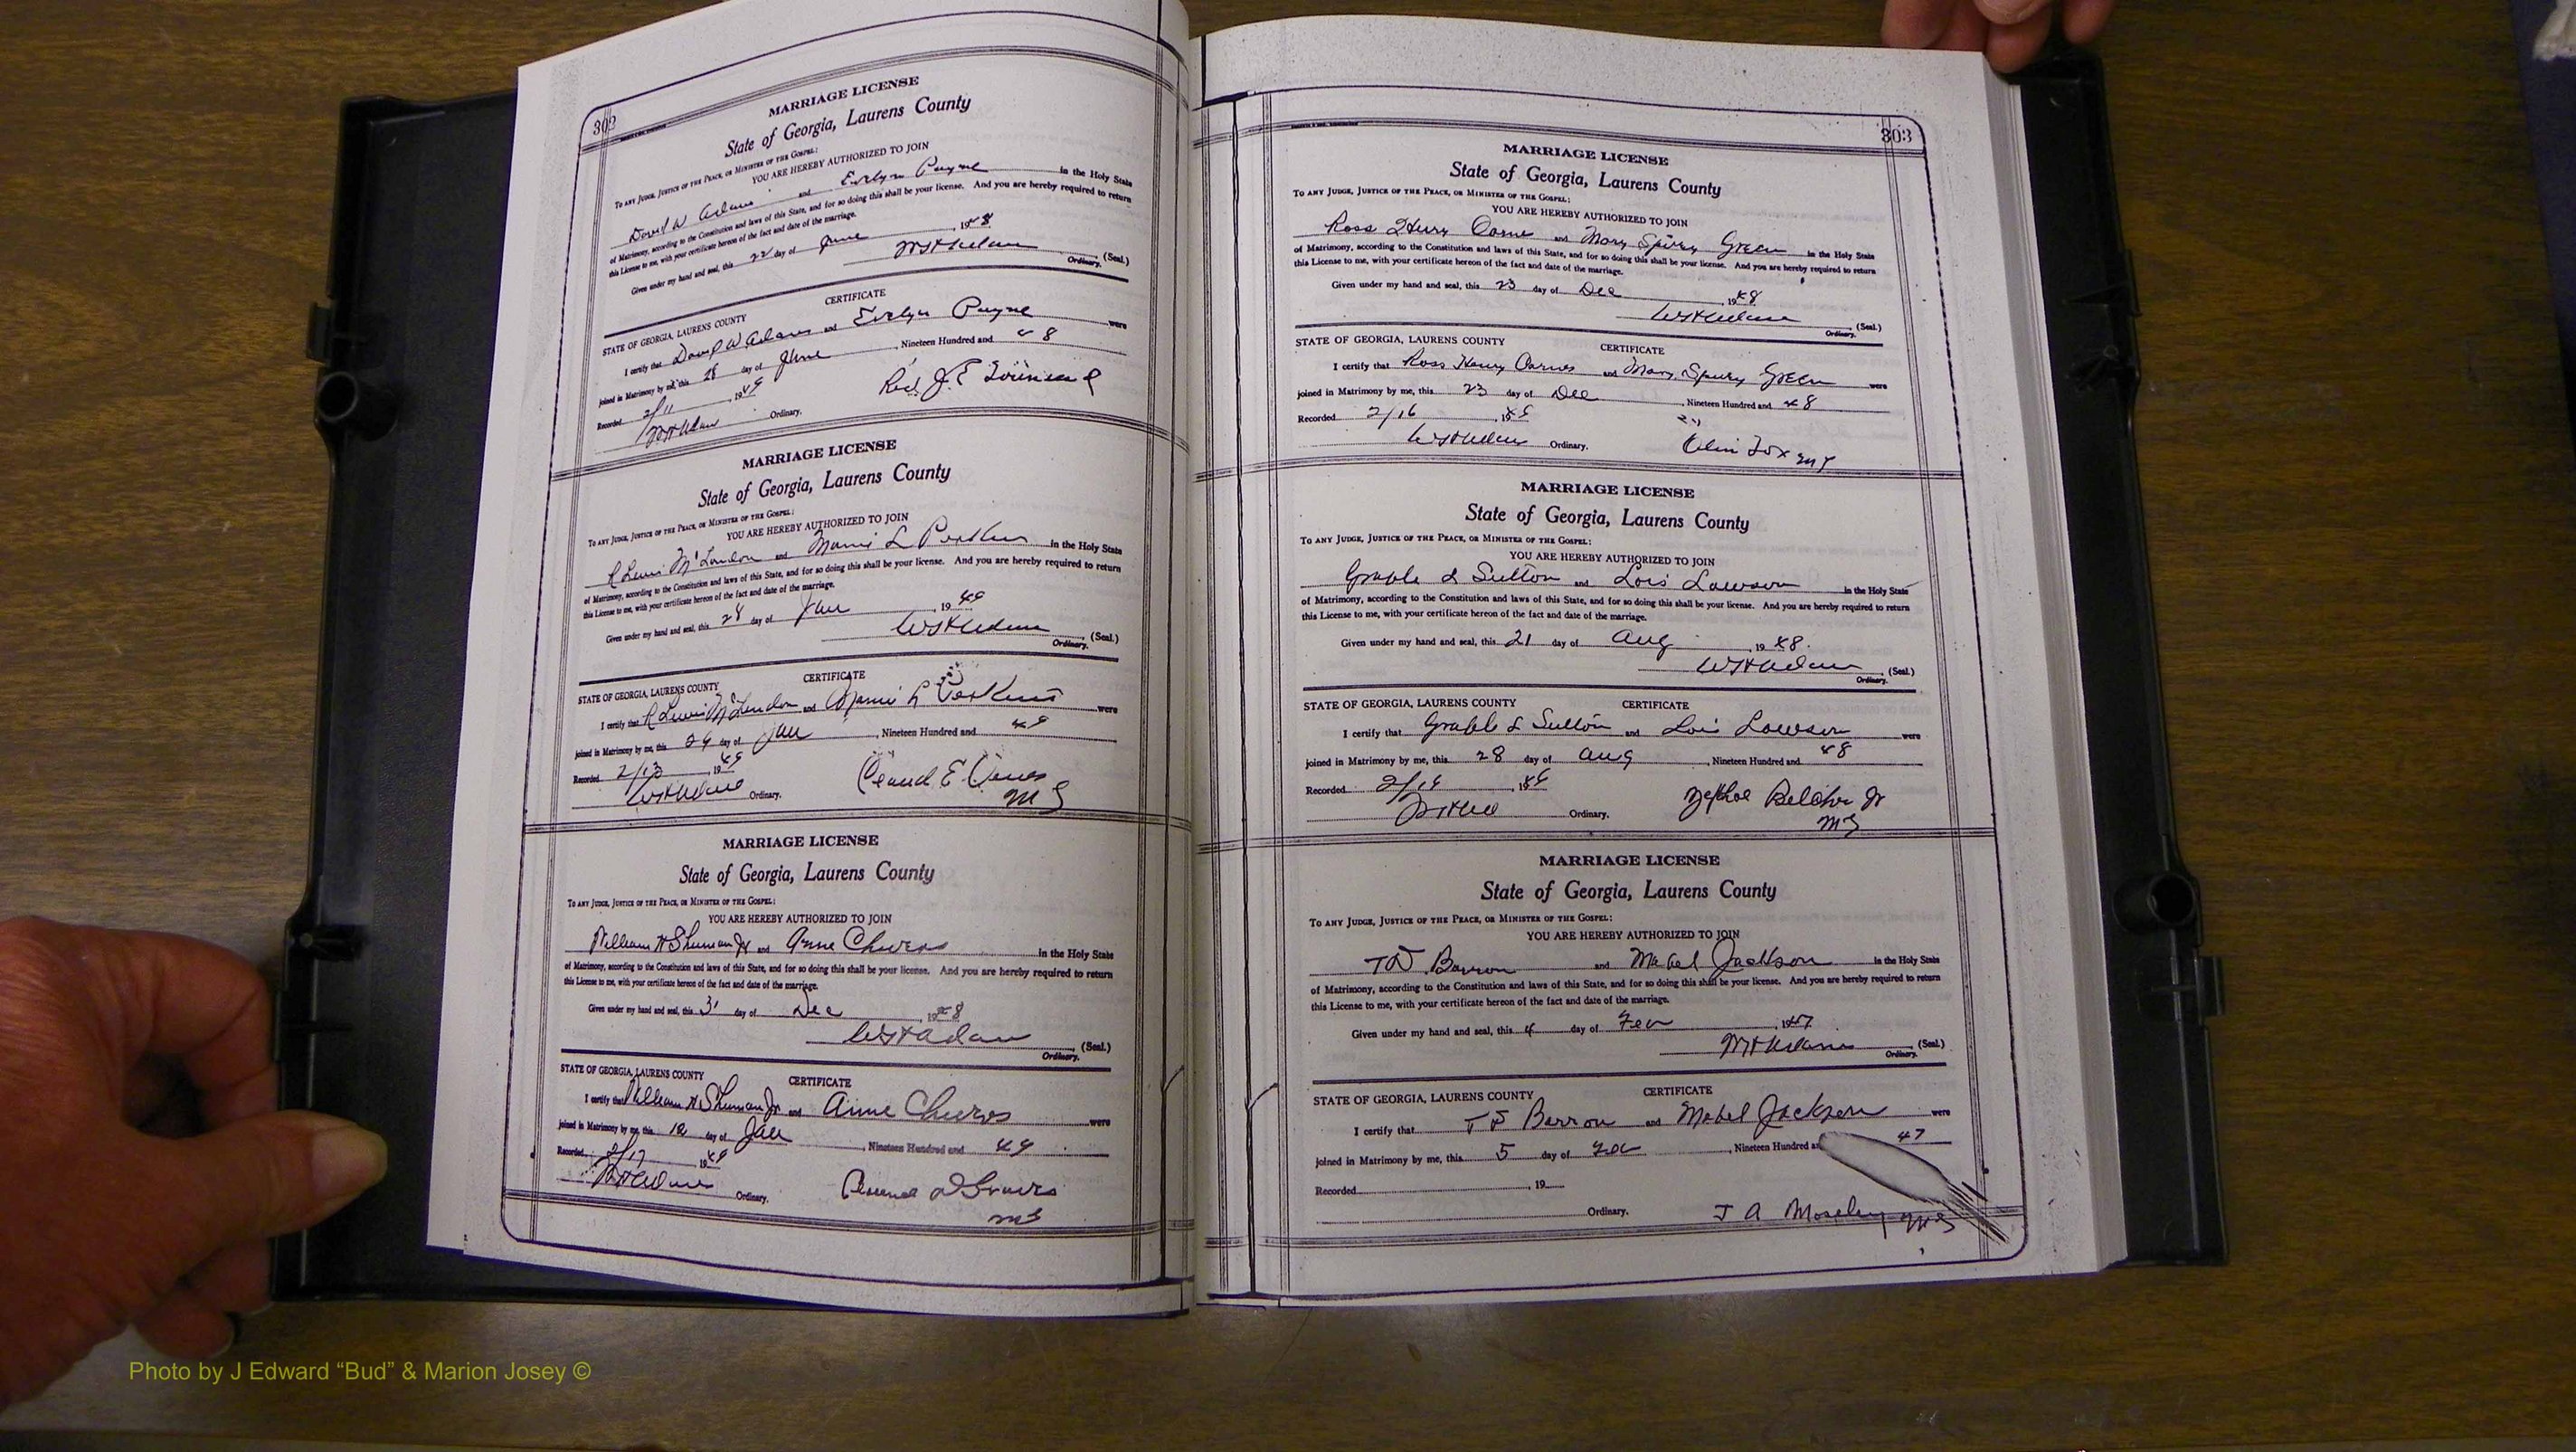 302
MARRIAGE LICENSE
State of Georgia, Laurens County
To any Judge, Justice of the Peace, or Minister of the Gospel:
YOU ARE HEREBY AUTHORIZED TO JOIN
David W Adams and Evelyn Payne in the Holy State
of Matrimony, according to the Constitution and laws of this State, and for so doing this shall be your license. And you are hereby required to return
this License to me, with your certificate hereon of the fact and date of the marriage.
Given under my hand and seal, this 22 day of June, 1948
(Seal.)
Ordinary.
CERTIFICATE
STATE OF GEORGIA, LAURENS COUNTY
I certify that David W Adams and Evelyn Payne were
joined in Matrimony by me, this day of June, Nineteen Hundred and 48
Recorded 2/11, 1949
Ordinary.
Rev. J. E.
MARRIAGE LICENSE
State of Georgia, Laurens County
To any Judge, Justice of the Peace, or Minister of the Gospel:
YOU ARE HEREBY AUTHORIZED TO JOIN
R Lewis McLendon and L Perkins in the Holy State
of Matrimony, according to the Constitution and laws of this State, and for so doing this shall be your license. And you are hereby required to return
this License to me, with your certificate hereon of the fact and date of the marriage.
Given under my hand and seal, this 28 day of Jan, 1949
(Seal.)
Ordinary.
CERTIFICATE
STATE OF GEORGIA, LAURENS COUNTY
I certify that R Lewis McLendon and L Perkins were
joined in Matrimony by me, this day of Jan, Nineteen Hundred and 49
Recorded 2/13, 1949
Ordinary.
Claud E
MG
MARRIAGE LICENSE
State of Georgia, Laurens County
To any Judge, Justice of the Peace, or Minister of the Gospel:
YOU ARE HEREBY AUTHORIZED TO JOIN
William H Shuman Jr and Anne in the Holy State
of Matrimony, according to the Constitution and laws of this State, and for so doing this shall be your license. And you are hereby required to return
this License to me, with your certificate hereon of the fact and date of the marriage.
Given under my hand and seal, this 31 day of Dec, 1948
W H Adams (Seal.)
Ordinary.
CERTIFICATE
STATE OF GEORGIA, LAURENS COUNTY
I certify that William H Shuman Jr and Anne were
joined in Matrimony by me, this day of Jan, Nineteen Hundred and 49
Recorded 2/17, 1949
Ordinary.
MG
303
MARRIAGE LICENSE
State of Georgia, Laurens County
To any Judge, Justice of the Peace, or Minister of the Gospel:
YOU ARE HEREBY AUTHORIZED TO JOIN
Ross Henry and Mary Spivey Green in the Holy State
of Matrimony, according to the Constitution and laws of this State, and for so doing this shall be your license. And you are hereby required to return
this License to me, with your certificate hereon of the fact and date of the marriage.
Given under my hand and seal, this 23 day of Dec, 1948
(Seal.)
Ordinary.
STATE OF GEORGIA, LAURENS COUNTY CERTIFICATE
I certify that Ross Henry and Mary Spivey Green were
joined in Matrimony by me, this 23 day of Dec, Nineteen Hundred and 48
Recorded 2/16, 1949
Ordinary.
Olin Fox MG
MARRIAGE LICENSE
State of Georgia, Laurens County
To any Judge, Justice of the Peace, or Minister of the Gospel:
YOU ARE HEREBY AUTHORIZED TO JOIN
Sutton and Lois Lawson in the Holy State
of Matrimony, according to the Constitution and laws of this State, and for so doing this shall be your license. And you are hereby required to return
this License to me, with your certificate hereon of the fact and date of the marriage.
Given under my hand and seal, this 21 day of Aug, 1948.
(Seal.)
Ordinary.
STATE OF GEORGIA, LAURENS COUNTY CERTIFICATE
I certify that Sutton and Lois Lawson were
joined in Matrimony by me, this 28 day of Aug, Nineteen Hundred and 48
Recorded, 1949
Ordinary.
Belcher Jr
MG
MARRIAGE LICENSE
State of Georgia, Laurens County
To any Judge, Justice of the Peace, or Minister of the Gospel:
YOU ARE HEREBY AUTHORIZED TO JOIN
Barron and Mabel Jackson in the Holy State
of Matrimony, according to the Constitution and laws of this State, and for so doing this shall be your license. And you are hereby required to return
this License to me, with your certificate hereon of the fact and date of the marriage.
Given under my hand and seal, this 4 day of Feb, 1947
(Seal.)
Ordinary.
STATE OF GEORGIA, LAURENS COUNTY CERTIFICATE
I certify that Barron and Mabel Jackson were
joined in Matrimony by me, this 5 day of Feb, Nineteen Hundred 47
Recorded, 19
Ordinary.
J A Moseley MG
Photo by J Edward “Bud” & Marion Josey ©